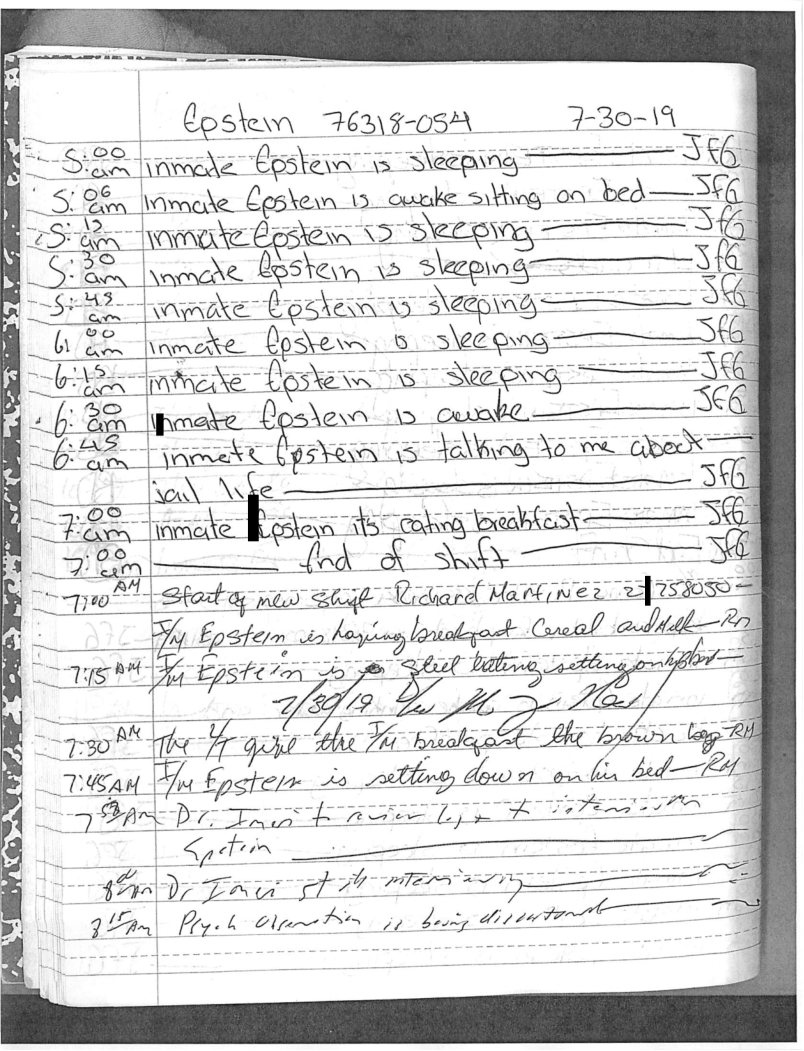 Epstein 76318-054 7-30-19
5:00 am inmate Epstein is sleeping JfG
5:06 am Inmate Epstein is awake sitting on bed JfG
5:15 am inmate Epstein is sleeping JfG
5:30 am inmate Epstein is sleeping JfG
5:45 am inmate Epstein is sleeping JfG
6:00 am inmate Epstein is sleeping JfG
6:15 am inmate Epstein is sleeping JfG
6:30 am inmate Epstein is awake JfG
6:45 am inmate Epstein is talking to me about
jail life JfG
7:00 am inmate Epstein its eating breakfast JfG
7:00 am End of shift JfG
7:00 AM Start of new shift Richard Martinez 258050
I/M Epstein is having breakfast Cereal and Milk RM
7:15 AM I/M Epstein is steel eating setting on his bed
7/30/19
7:30 AM The give the I/M breakfast the brown bag RM
7:45 AM I/M Epstein is setting down on his bed RM
AM Dr. to review log +
Epstein
AM Dr. interviewing
8 15 AM Psych observation is being